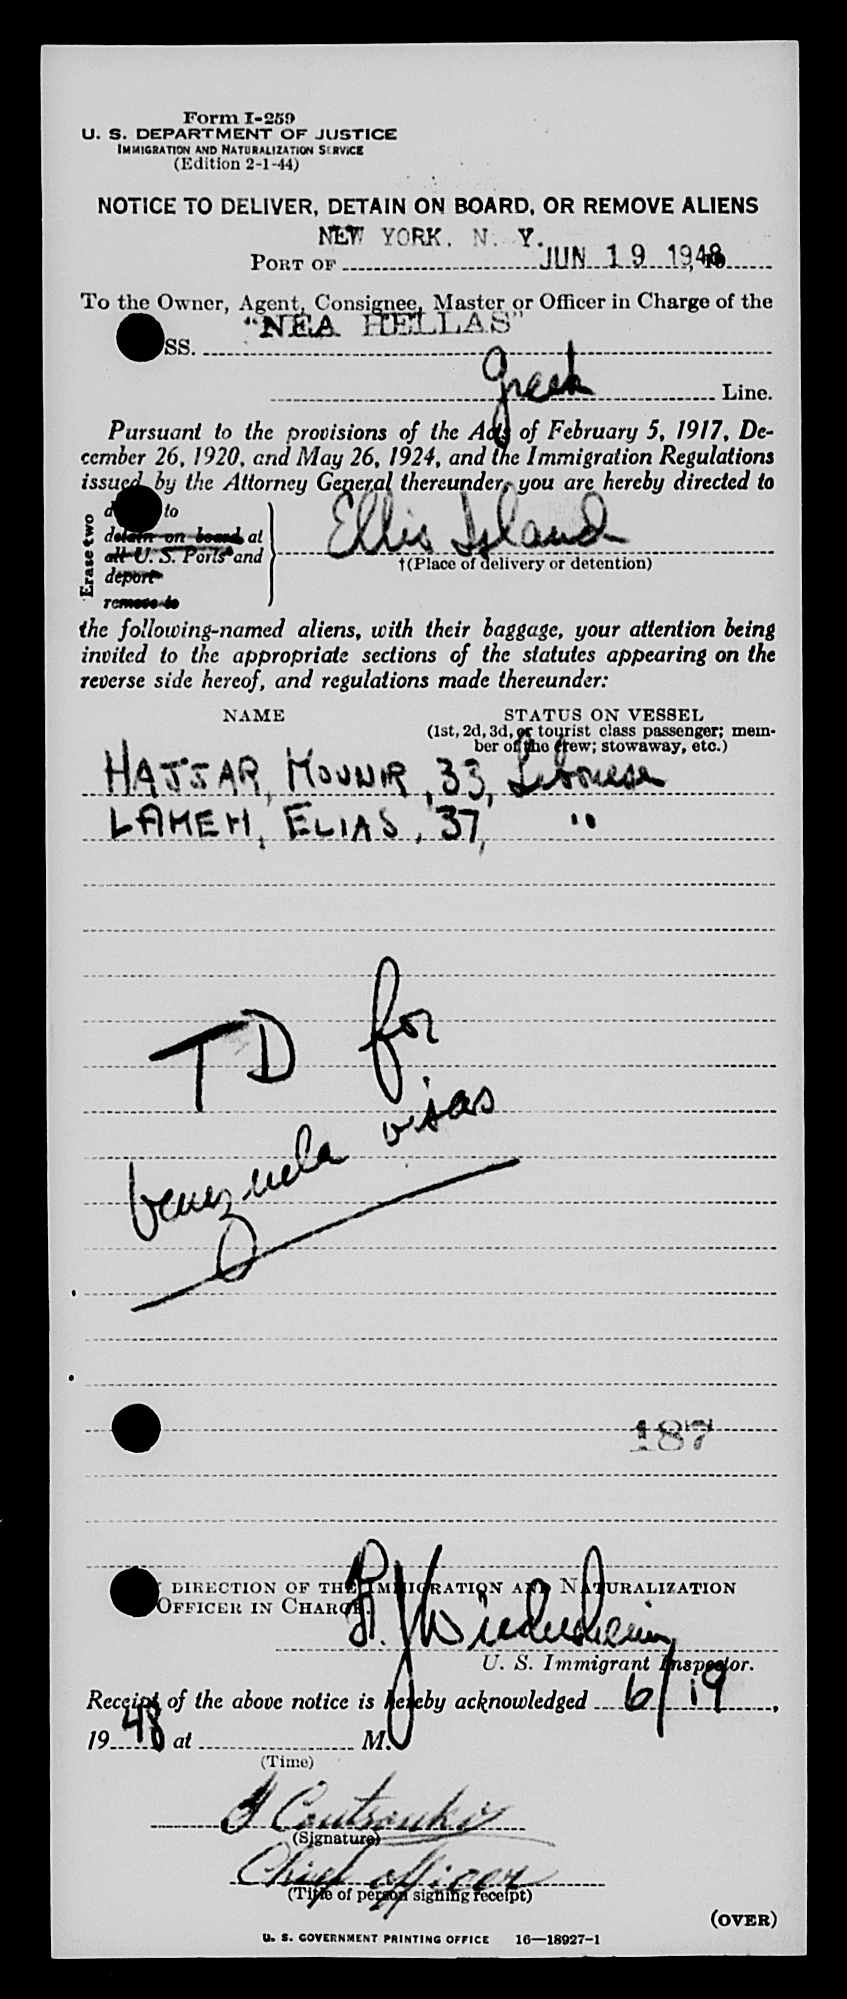 Form I-259
U. S. DEPARTMENT OF JUSTICE
IMMIGRATION AND NATURALIZATION SERVICE
(Edition 2-1-44)
NOTICE TO DELIVER, DETAIN ON BOARD, OR REMOVE ALIENS
NEW YORK, N. Y.
PORT OF JUN 19 1948
To the Owner, Agent, Consignee, Master or Officer in Charge of the
SS. "NEA HELLAS"
Greek Line.
Pursuant to the provisions of the Acts of February 5, 1917, De-
cember 26, 1920, and May 26, 1924, and the Immigration Regulations
issued by the Attorney General thereunder, you are hereby directed to
Erase two
to
detain on board at
all U. S. Ports and
deport
remove to
Ellis Island
†(Place of delivery or detention)
the following-named aliens, with their baggage, your attention being
invited to the appropriate sections of the statutes appearing on the
reverse side hereof, and regulations made thereunder:
NAME STATUS ON VESSEL
(1st, 2d, 3d, or tourist class passenger; mem-
ber of the crew; stowaway, etc.)
HAJJAR, MOUNIR, 33, Lebonese
LAMEH, ELIAS, 37, "
TD for
Venezuela visas
187
DIRECTION OF THE IMMIGRATION AND NATURALIZATION
OFFICER IN CHARGE.
U. S. Immigrant Inspector.
Receipt of the above notice is hereby acknowledged 6/19,
1948 at M.
(Time)
(Signature)
Chief officer
(Title of person signing receipt)
(OVER)
U. S. GOVERNMENT PRINTING OFFICE 16—18927-1